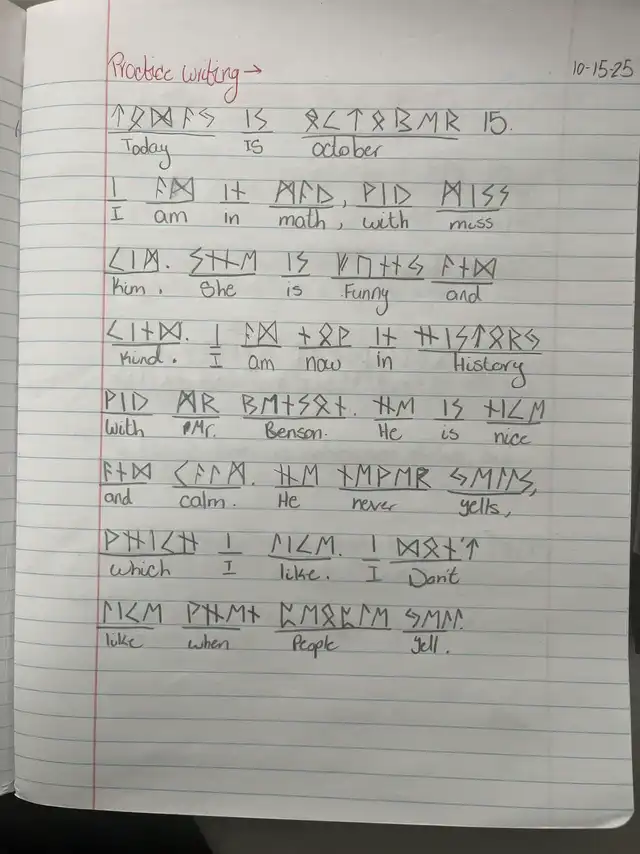 Practice writing → 10-15-25
ᛏᛟᛞᚨᛃ ᛁᛊ ᛟᚲᛏᛟᛒᛖᚱ 15.
Today is october
ᛁ ᚨᛗ ᛁᚾ ᛗᚨᚦ, ᚹᛁᚦ ᛗᛁᛊᛊ
I am in math, with miss
ᚲᛁᛗ. ᛊᚺᛖ ᛁᛊ ᚠᚢᚾᚾᛃ ᚨᚾᛞ
Kim. She is Funny and
ᚲᛁᚾᛞ. ᛁ ᚨᛗ ᚾᛟᚹ ᛁᚾ ᚺᛁᛊᛏᛟᚱᛃ
Kind. I am now in History
ᚹᛁᚦ ᛗᚱ ᛒᛖᚾᛊᛟᚾ. ᚺᛖ ᛁᛊ ᚾᛁᚲᛖ
with Mr. Benson. He is nice
ᚨᚾᛞ ᚲᚨᛚᛗ. ᚺᛖ ᚾᛖᚹᛖᚱ ᛃᛖᛚᛚᛊ,
and calm. He never yells,
ᚹᚺᛁᚲᚺ ᛁ ᛚᛁᚲᛖ. ᛁ ᛞᛟᚾ'ᛏ
which I like. I Don't
ᛚᛁᚲᛖ ᚹᚺᛖᚾ ᛈᛖᛟᛈᛚᛖ ᛃᛖᛚᛚ.
like when People yell.